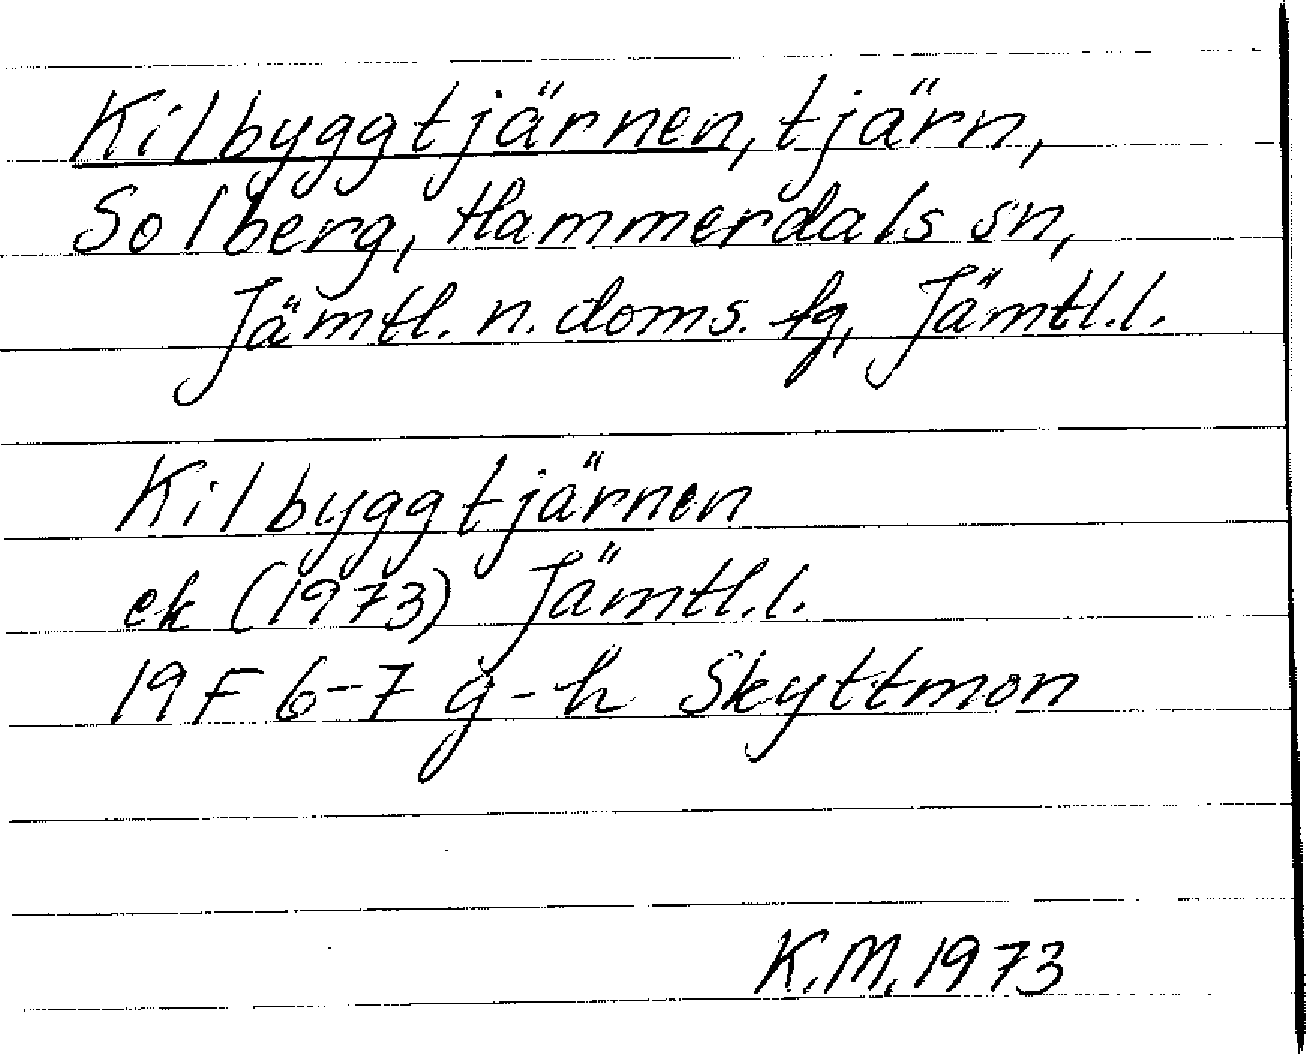 Kilbyggtjärnen, tjärn,
Solberg, Hammerdals sn,
Jämtl. n. doms. fg, Jämtl.l.
Kilbyggtjärnen
ek (1973) Jämtl.l.
19F 6-7 g-h Skyttmon
K.M. 1973